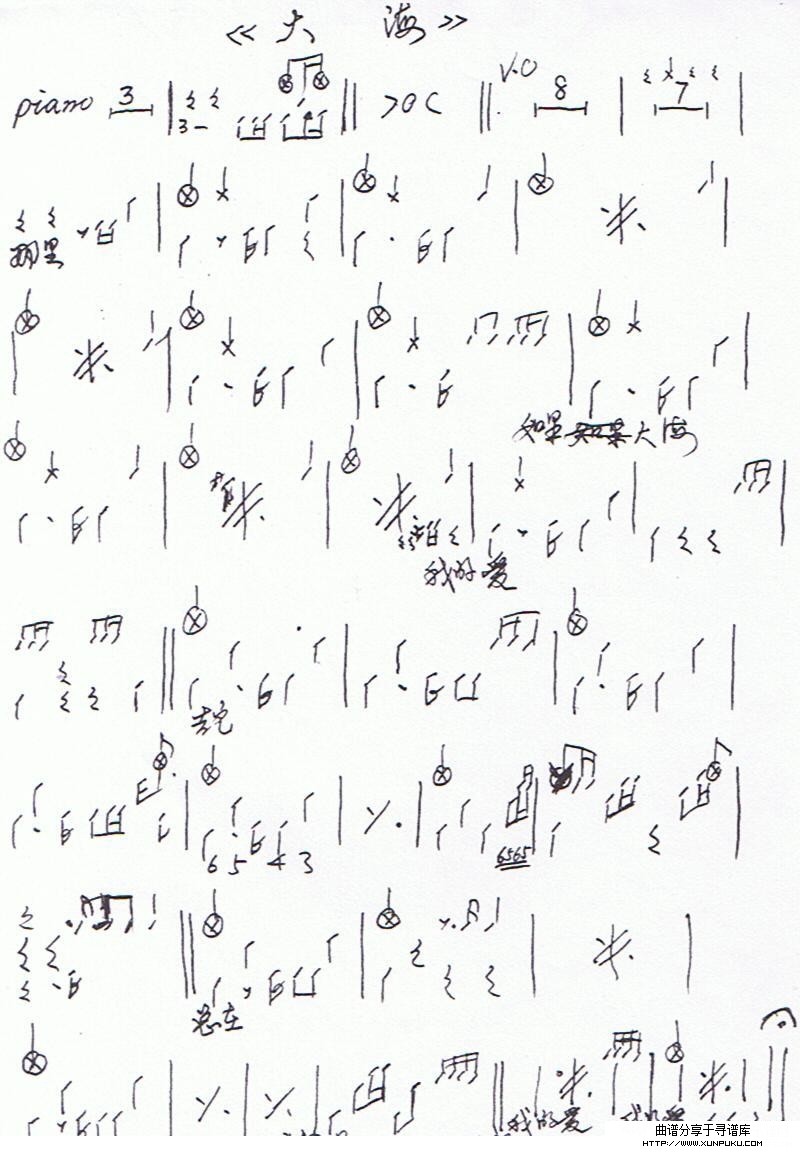 《大 海》
piano 3 3— >OC V.O 8 7
那里
如果 大海
我的爱
去它
6 5 4 3 6565
总在
我的爱 我的爱
曲谱分享于寻谱库
HTTP://WWW.XUNPUKU.COM